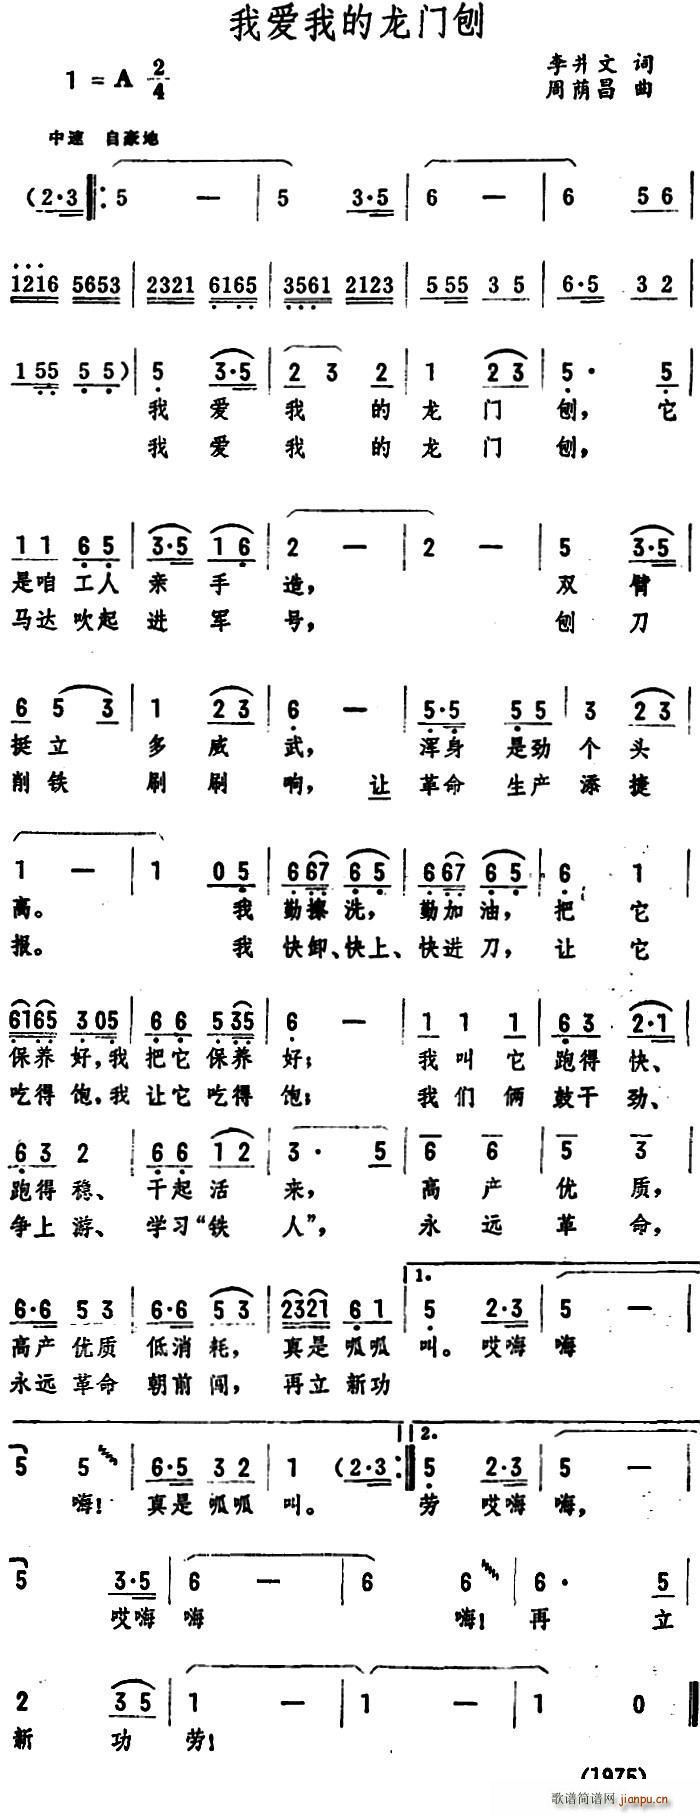 我爱我的龙门刨
李井文 词
1 = A 2/4
周荫昌 曲
中速 自豪地
(2·3 ‖: 5 — | 5 3·5 | 6 — | 6 5 6 |
1216 5653 | 2321 6165 | 3561 2123 | 5 55 3 5 | 6·5 3 2 |
1 55 5 5) | 5 3·5 | 2 3 2 | 1 2 3 | 5· 5 |
我 爱 我 的 龙 门 刨, 它
我 爱 我 的 龙 门 刨,
1 1 6 5 | 3·5 1 6 | 2 — | 2 — | 5 3·5 |
是咱 工人 亲 手 造, 双 臂
马达 吹起 进 军 号, 刨 刀
6 5 3 | 1 2 3 | 6· — | 5·5 5 5 | 3 2 3 |
挺 立 多 威 武, 浑身 是劲 个 头
削 铁 刷 刷 响, 让 革命 生产 添 捷
1 — | 1 0 5 | 6 67 6 5 | 6 67 6 5 | 6 1 |
高。 我 勤擦 洗, 勤加 油, 把 它
报。 我 快卸、快上、快进 刀, 让 它
6165 3 05 | 6 6 5 35 | 6 — | 1 1 1 | 6 3 2·1 |
保养 好,我 把它 保养 好; 我 叫 它 跑得 快、
吃得 饱,我 让它 吃得 饱; 我 们 俩 鼓干 劲、
6 3 2 | 6 6 1 2 | 3· 5 | 6 6 | 5 3 |
跑得 稳、 干起 活 来, 高 产 优 质,
争上 游、 学习“铁 人”, 永 远 革 命,
1. 
6·6 5 3 | 6·6 5 3 | 2321 6 1 | 5 2·3 | 5 — |
高产 优质 低消 耗, 真是 呱呱 叫。 哎嗨 嗨
永远 革命 朝前 闯, 再立 新功
2.
5 5 | 6·5 3 2 | 1 (2·3 :‖ 5 2·3 | 5 — |
嗨! 真是 呱呱 叫。 劳 哎嗨 嗨,
5 3·5 | 6 — | 6 6 | 6· 5 |
哎嗨 嗨 嗨! 再 立
2 3 5 | 1 — | 1 — | 1 0 ‖
新 功 劳!
(1975)
歌谱简谱网
jianpu.cn